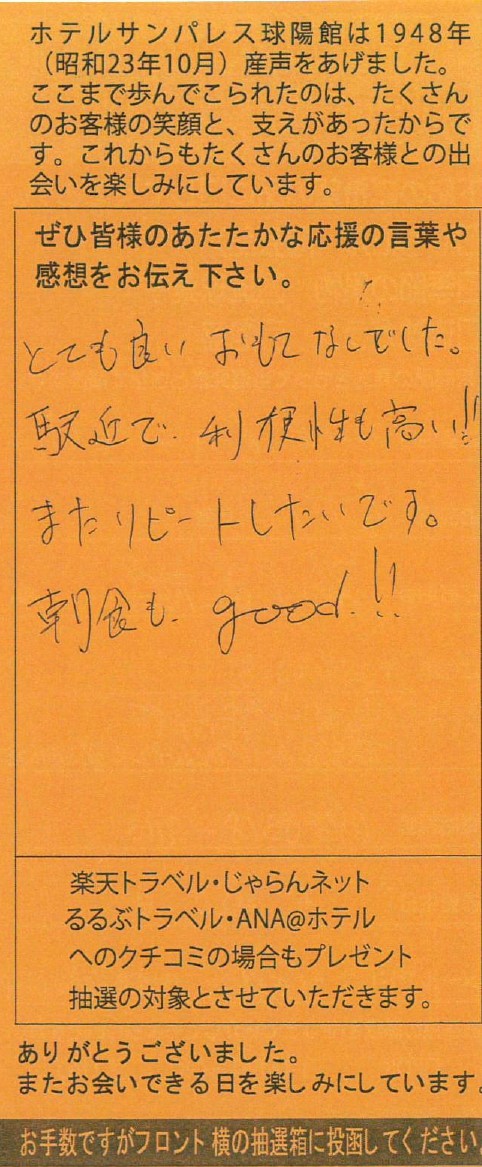 ホテルサンパレス球陽館は1948年
（昭和23年10月）産声をあげました。
ここまで歩んでこられたのは、たくさん
のお客様の笑顔と、支えがあったからで
す。これからもたくさんのお客様との出
会いを楽しみにしています。
ぜひ皆様のあたたかな応援の言葉や
感想をお伝え下さい。
とても良いおもてなしでした。
駅近で、利便性も高い!!
またリピートしたいです。
朝食も、good.!!
楽天トラベル・じゃらんネット
るるぶトラベル・ANA@ホテル
へのクチコミの場合もプレゼント
抽選の対象とさせていただきます。
ありがとうございました。
またお会いできる日を楽しみにしています。
お手数ですがフロント横の抽選箱に投函してください。